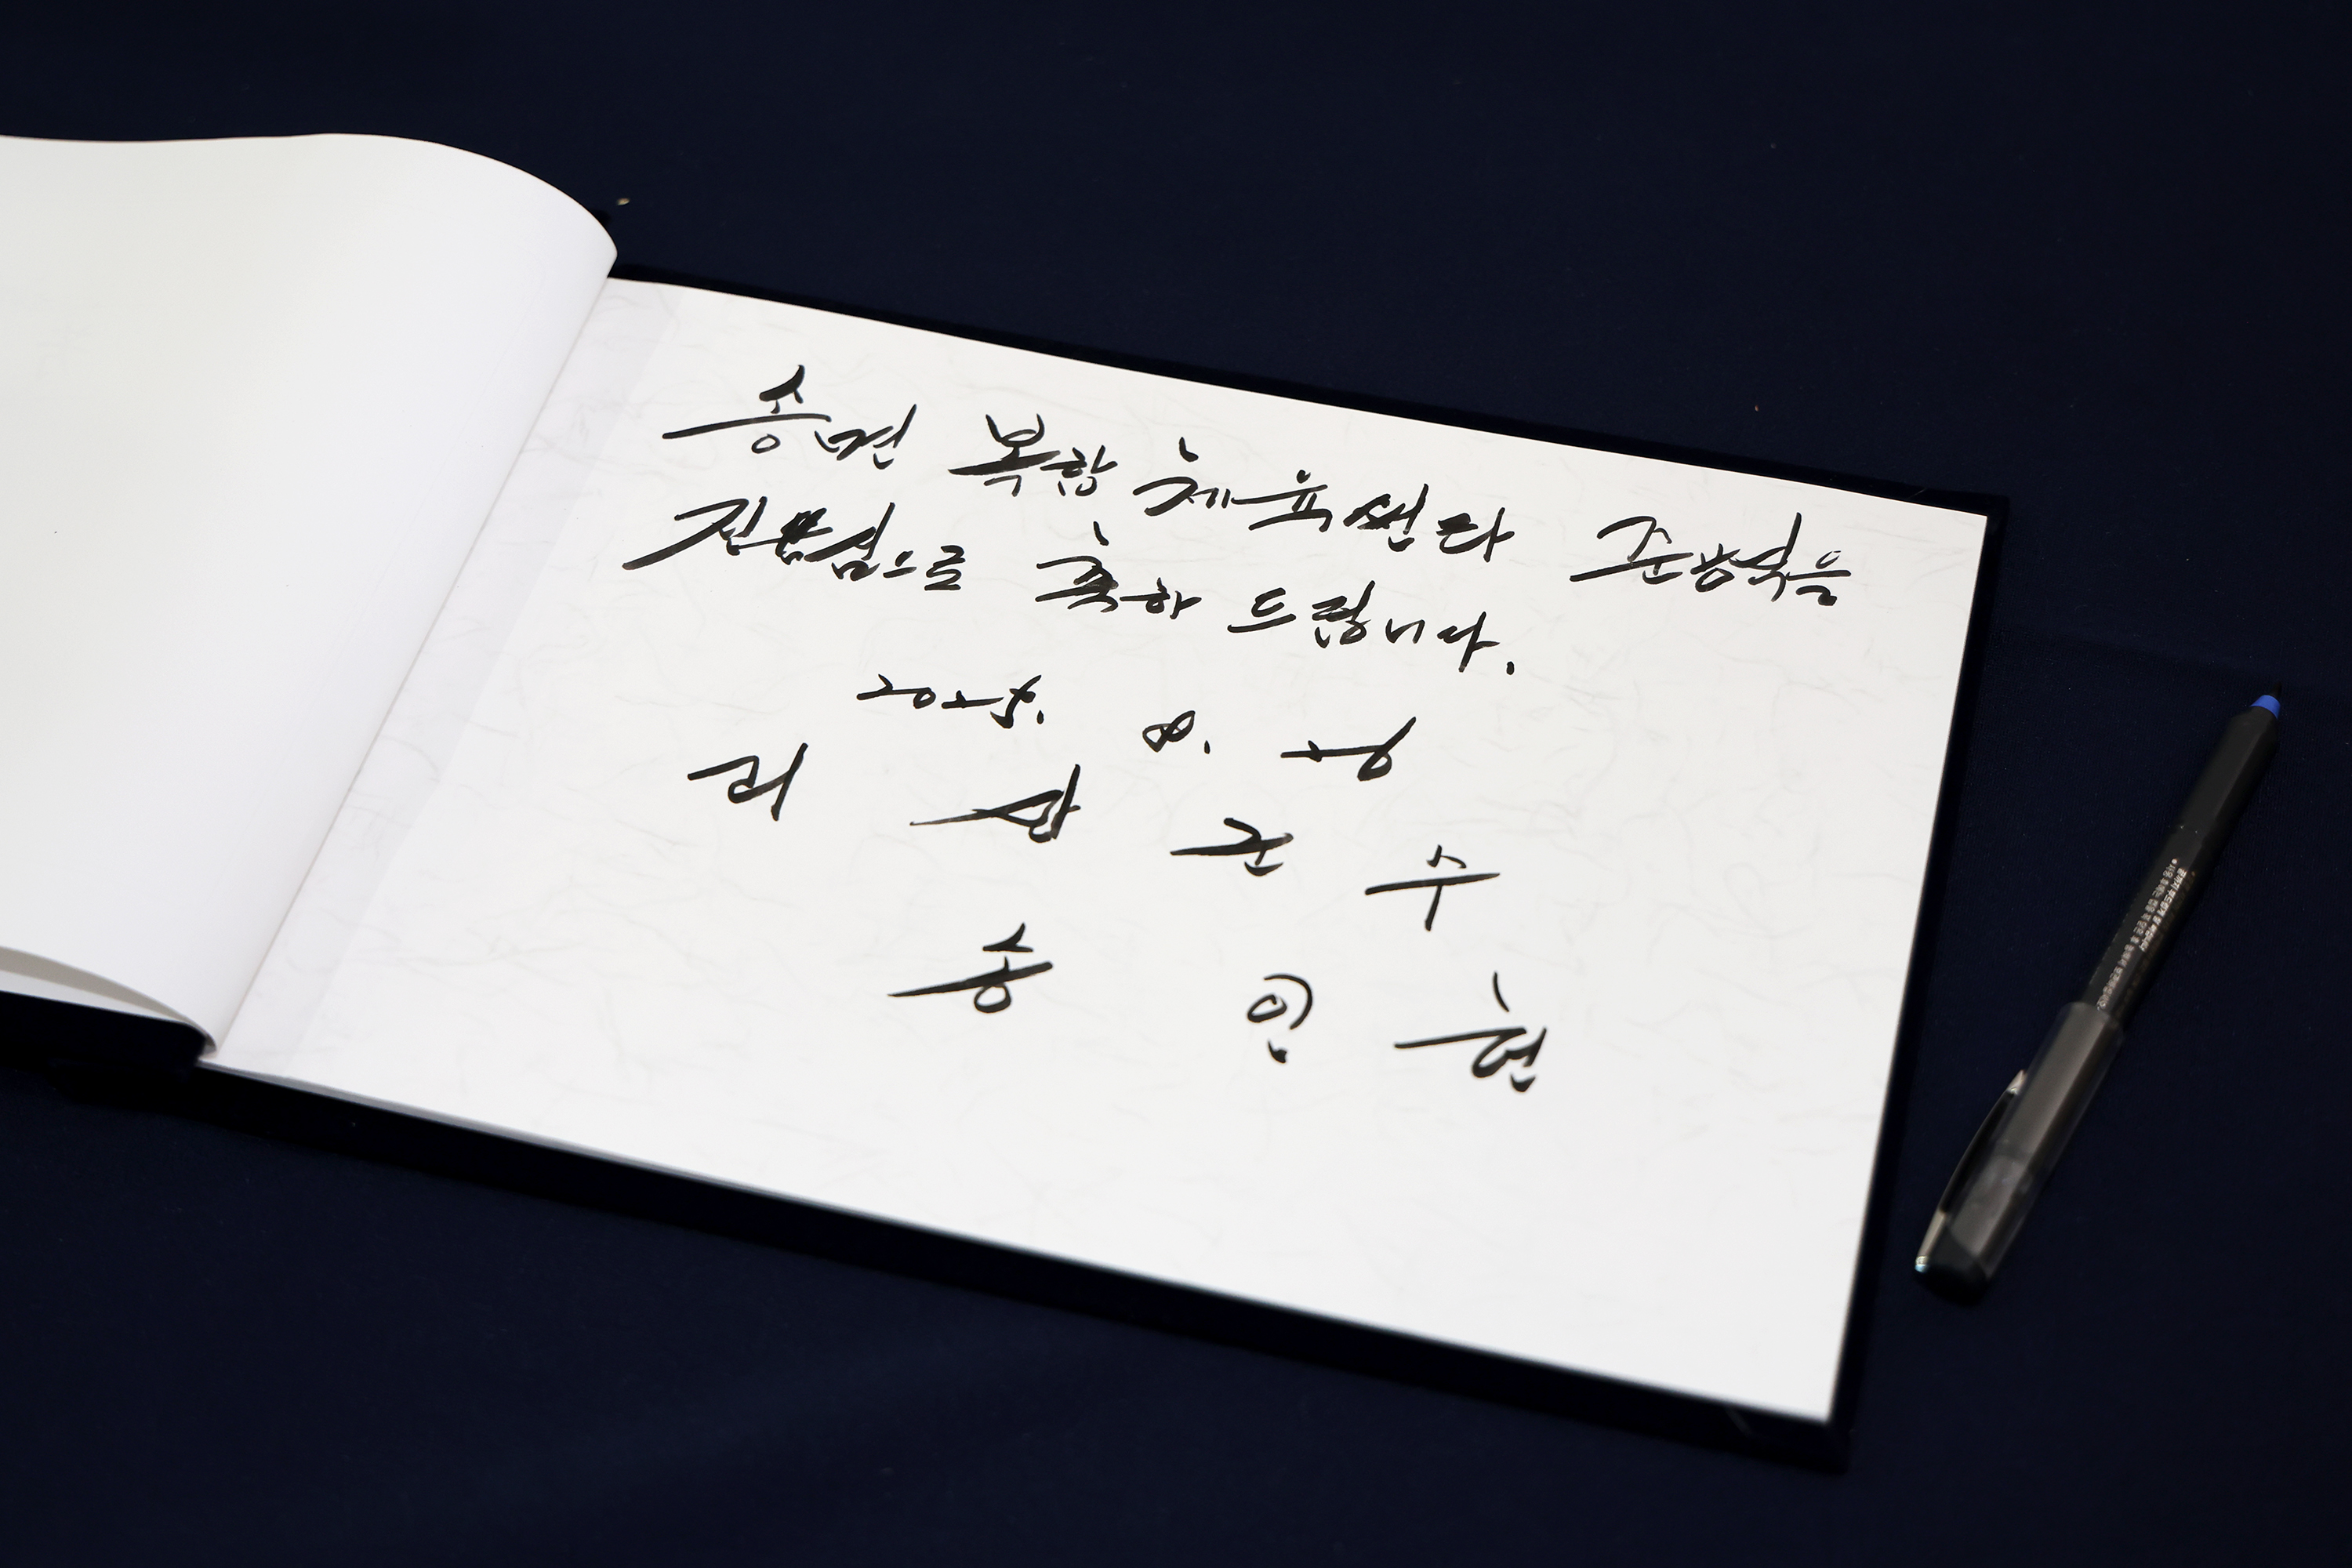 송면 복합 체육센타 준공식을
진심으로 축하 드립니다.
2025. 8. 26
괴 산 군 수
송 인 헌